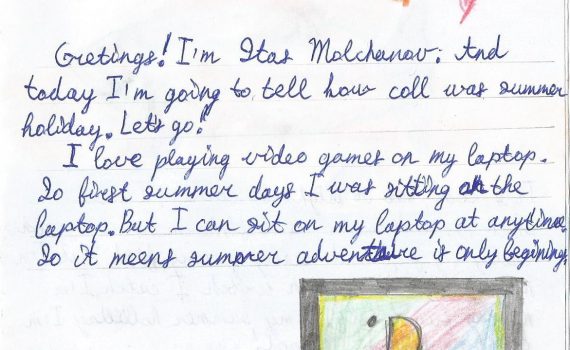 Gretings! I'm Stas Molchanov. And
today I'm going to tell how coll was summer
holiday. Let's go!
I love playing video games on my laptop.
So first summer days I was sitting at the
laptop. But I can sit on my laptop at anytime.
So it meens summer adventure is only begining.